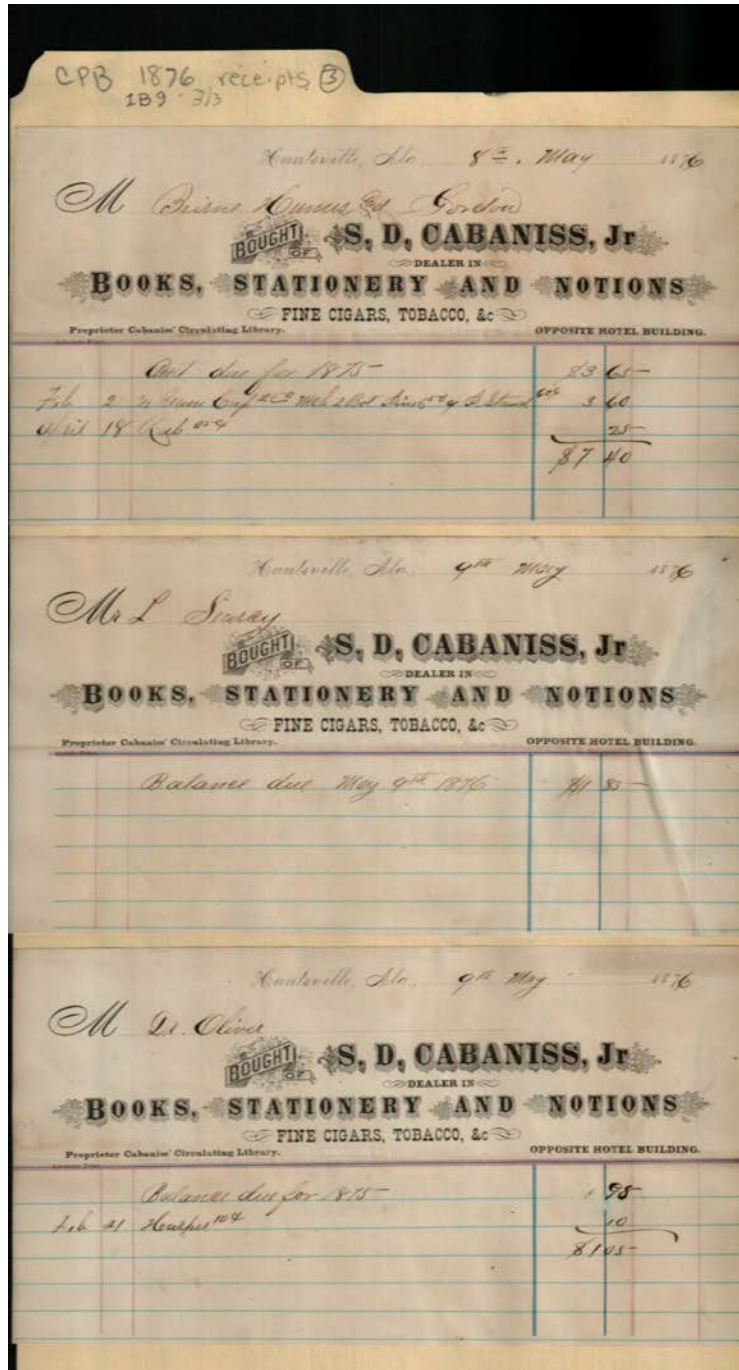 CPB 1876 receipts ③
1B9 - 3/3
Huntsville, Ala. 8th. May 1876
M Beirne Gordon
BOUGHT OF S. D. CABANISS, Jr
DEALER IN
BOOKS, STATIONERY AND NOTIONS
FINE CIGARS, TOBACCO, &c
Proprietor Cabaniss' Circulating Library. OPPOSITE HOTEL BUILDING.
due for 1875 $3 65
Feb 2 3 60
April 18 25
$7 40
Huntsville, Ala. 9th May 1876
Mr L
BOUGHT OF S. D. CABANISS, Jr
DEALER IN
BOOKS, STATIONERY AND NOTIONS
FINE CIGARS, TOBACCO, &c
Proprietor Cabaniss' Circulating Library. OPPOSITE HOTEL BUILDING.
Balance due May 9th 1876
Huntsville, Ala., 9th May 1876
M Dr. Oliver
BOUGHT OF S. D. CABANISS, Jr
DEALER IN
BOOKS, STATIONERY AND NOTIONS
FINE CIGARS, TOBACCO, &c
Proprietor Cabaniss' Circulating Library. OPPOSITE HOTEL BUILDING.
Balance due for 1875 95
Feb 21 Harper 10¢ 10
$1 05